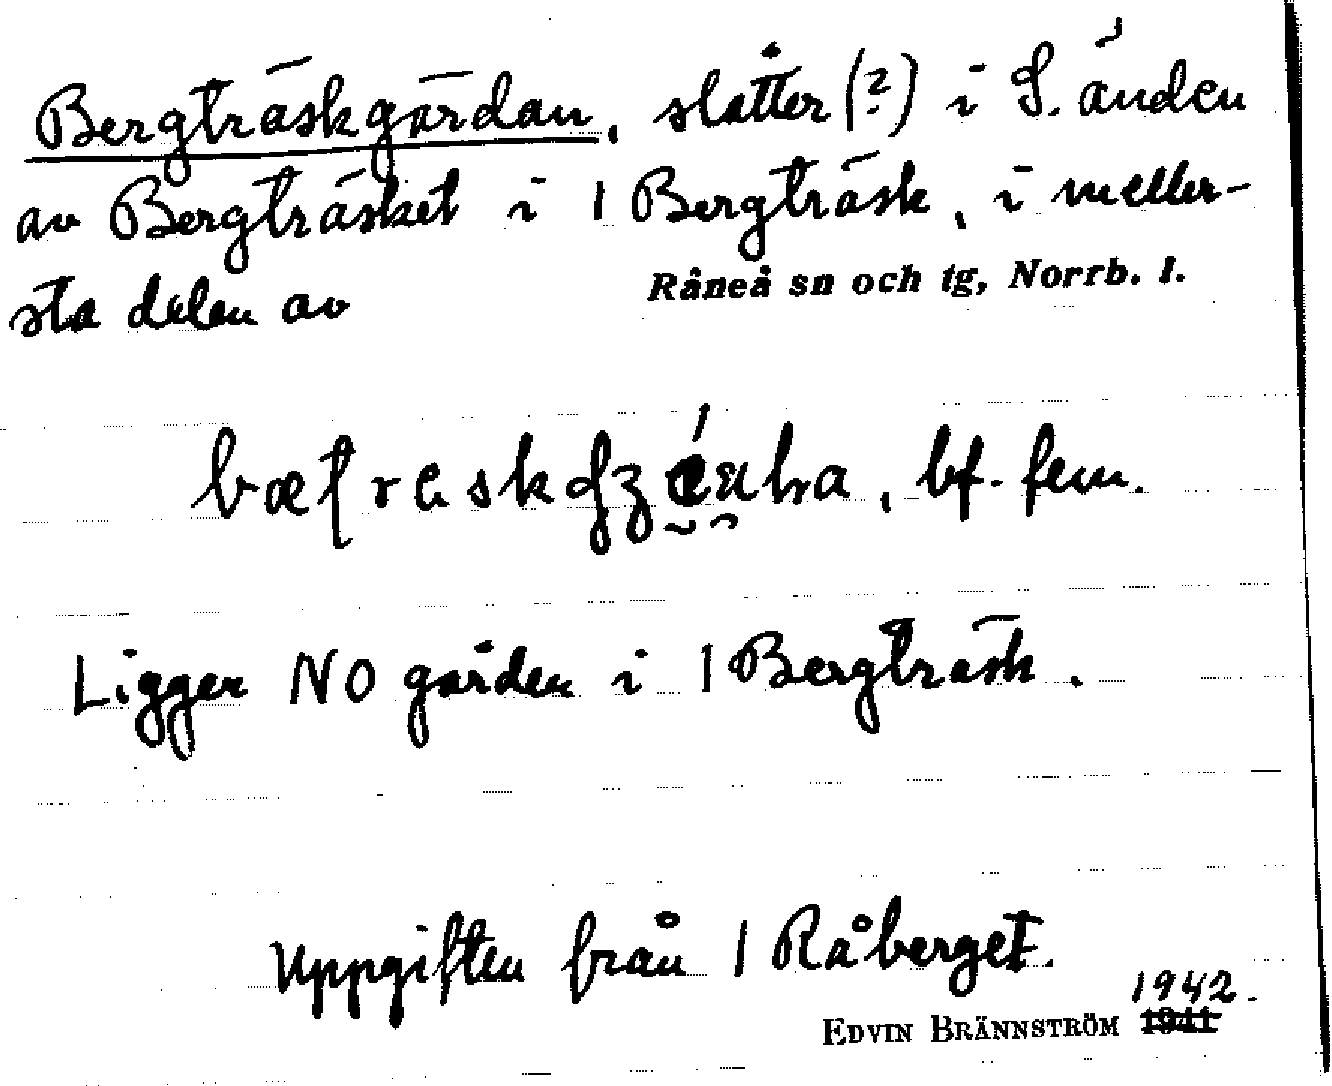 Bergträskgärdan, slåtter (?) i S. änden
av Bergträsket i 1 Bergträsk, i meller-
sta delen av Råneå sn och tg, Norrb. l.
bf. fem.
Ligger NO gården i 1 Bergträsk.
Uppgiften från 1 Råberget.
1942.
EDVIN BRÄNNSTRÖM 1941